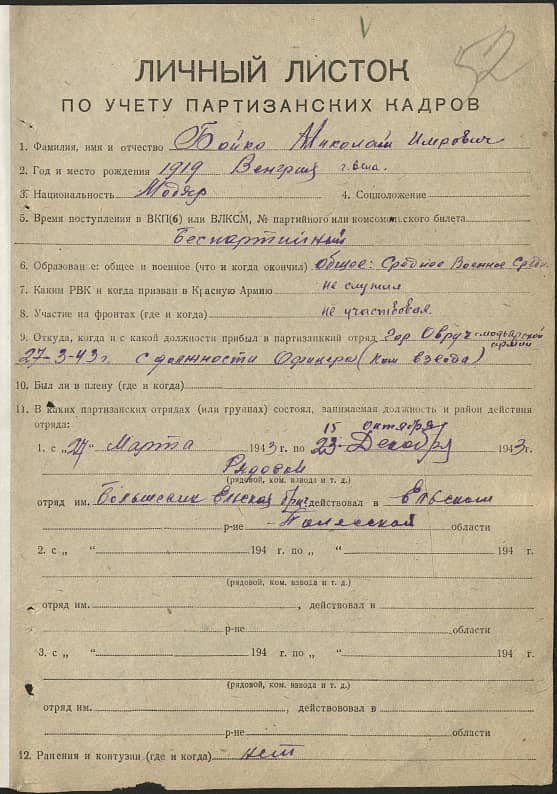 52
ЛИЧНЫЙ ЛИСТОК
ПО УЧЕТУ ПАРТИЗАНСКИХ КАДРОВ
1. Фамилия, имя и отчество Бойко Николай Имрович
2. Год и место рождения 1919 Венгрия г.
3. Национальность Модяр 4. Соцположение
5. Время поступления в ВКП(б) или ВЛКСМ, № партийного или комсомольского билета
Беспартийный
6. Образование: общее и военное (что и когда окончил) общее: Среднее Военное Средн.
7. Каким РВК и когда призван в Красную Армию не служил
8. Участие на фронтах (где и когда) не участвовал
9. Откуда, когда и с какой должности прибыл в партизанкий отряд гор Овруч - модьярской армии
27-3-43 г. с должности Офицера (ком взвода)
10. Был ли в плену (где и когда)
11. В каких партизанских отрядах (или группах) состоял, занимаемая должность и район действия
отряда:
15 октября
1. с „27" Марта 1943 г. по 23 Декабря 1943 г.
Рядовой
(рядовой, ком. взвода и т. д.)
отряд им. Большевик Ельской бриг действовал в Ельском
р-не Полесской области
2. с „ " 194 г. по „ " 194 г.
(рядовой, ком. взвода и т. д.)
отряд им. , действовал в
р-не области
3. с „ " 194 г. по „ " 194 г.
(рядовой, ком. взвода и т. д.)
отряд им. , действововал в
р-не области
12. Ранения и контузии (где и когда) нет